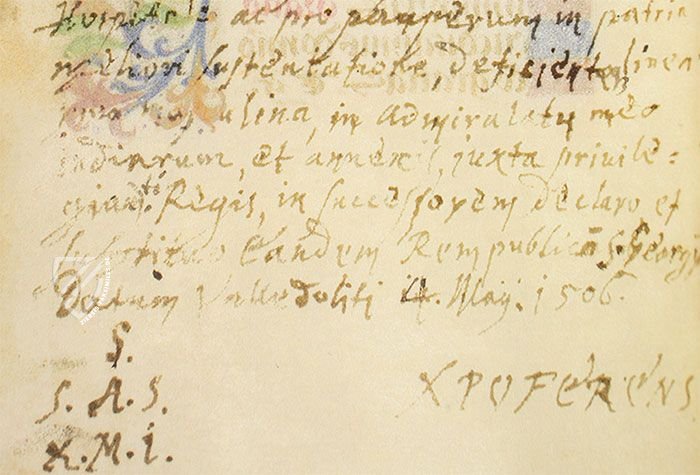 Hospitale ac pro pauperum in patria
meliori sustentatione, deficiente linea
mea masculina, in Admiralatu meo
indiarum, et annexis, juxta privile-
gium dti. Regis, in successorem declaro et
substituo Eandem Rempublicã S. Georgij
Datum Valledoliti 4. Maij. 1506.
S.
S. A. S.
X. M. I.
XPOFERENS